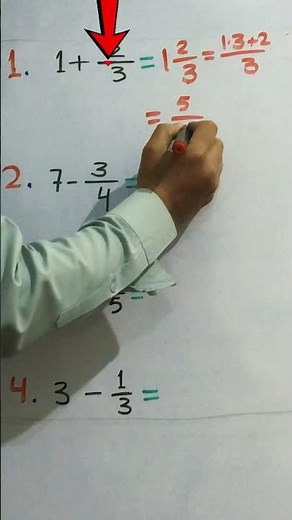 1. 1 + 2/3 = 1 2/3 = 1·3+2/3
= 5/
2. 7 - 3/4 =
5 =
4. 3 - 1/3 =